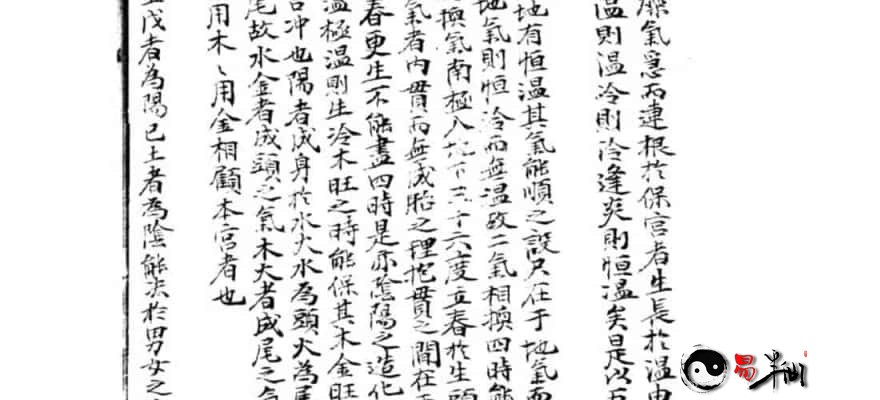 燥氣急而連根於保宮者生長於溫由
溫則溫冷則冷逢炎則恒溫矣是以五
地有恒溫其氣能順之設只在于地氣而
地氣則恒冷而無溫故二氣相換四時能
換氣南極入地下三十六度立春於生頭
氣者內貫而無成胎之理抱貫之間在
春更生不能盡四時是亦陰陽之造化
溫極溫則生冷木旺之時能保其木金旺
合冲也陽者成身於水火水為頭火為尾
尾故水金者成頭之氣木火者成尾之氣
用木〻用金相顧本宮者也
戊者為陽己土者為陰能决於男女之
易半仙